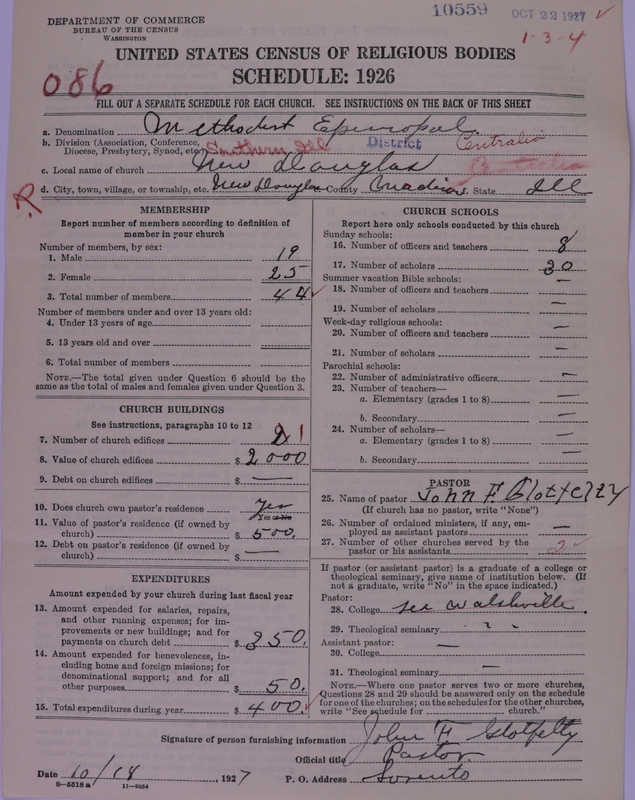 DEPARTMENT OF COMMERCE
BUREAU OF THE CENSUS
WASHINGTON
10559 OCT 22 1927
1-3-4
UNITED STATES CENSUS OF RELIGIOUS BODIES
SCHEDULE: 1926
086
FILL OUT A SEPARATE SCHEDULE FOR EACH CHURCH. SEE INSTRUCTIONS ON THE BACK OF THIS SHEET
a. Denomination Methodist Episcopal
b. Division (Association, Conference, Diocese, Presbytery, Synod, etc.) Southern Ill District Centralia
Centralia
c. Local name of church New Douglas
d. City, town, village, or township, etc. New Douglas County Madison State Ill
MEMBERSHIP
Report number of members according to definition of
member in your church
Number of members, by sex:
1. Male 19
2. Female 25
3. Total number of members 44
Number of members under and over 13 years old:
4. Under 13 years of age
5. 13 years old and over
6. Total number of members
NOTE.—The total given under Question 6 should be the
same as the total of males and females given under Question 3.
CHURCH BUILDINGS
See instructions, paragraphs 10 to 12
7. Number of church edifices 1
8. Value of church edifices $ 2000
9. Debt on church edifices $ —
10. Does church own pastor's residence Yes
Yes or No
11. Value of pastor's residence (if owned by
church) $ 500.
12. Debt on pastor's residence (if owned by
church) $ —
EXPENDITURES
Amount expended by your church during last fiscal year
13. Amount expended for salaries, repairs,
and other running expenses; for im-
provements or new buildings; and for
payments on church debt $ 350.
14. Amount expended for benevolences, in-
cluding home and foreign missions; for
denominational support; and for all
other purposes $ 50.
15. Total expenditures during year $ 400.
CHURCH SCHOOLS
Report here only schools conducted by this church
Sunday schools:
16. Number of officers and teachers 8
17. Number of scholars 30
Summer vacation Bible schools:
18. Number of officers and teachers —
19. Number of scholars —
Week-day religious schools:
20. Number of officers and teachers —
21. Number of scholars —
Parochial schools:
22. Number of administrative officers —
23. Number of teachers—
a. Elementary (grades 1 to 8) —
b. Secondary —
24. Number of scholars—
a. Elementary (grades 1 to 8) —
b. Secondary —
PASTOR
25. Name of pastor John F. Glotfelty
(If church has no pastor, write "None")
26. Number of ordained ministers, if any, em-
ployed as assistant pastors —
27. Number of other churches served by the
pastor or his assistants 2
If pastor (or assistant pastor) is a graduate of a college or
theological seminary, give name of institution below. (If
not a graduate, write "No" in the space indicated.)
Pastor:
28. College see Walshville
29. Theological seminary " "
Assistant pastor:
30. College —
31. Theological seminary —
NOTE.—Where one pastor serves two or more churches,
Questions 28 and 29 should be answered only on the schedule
for one of the churches; on the schedules for the other churches,
write "See schedule for church."
Signature of person furnishing information John F Glotfelty
Official title Pastor
Date 10/18, 1927 P. O. Address Sorento
8-5518a 11-9054